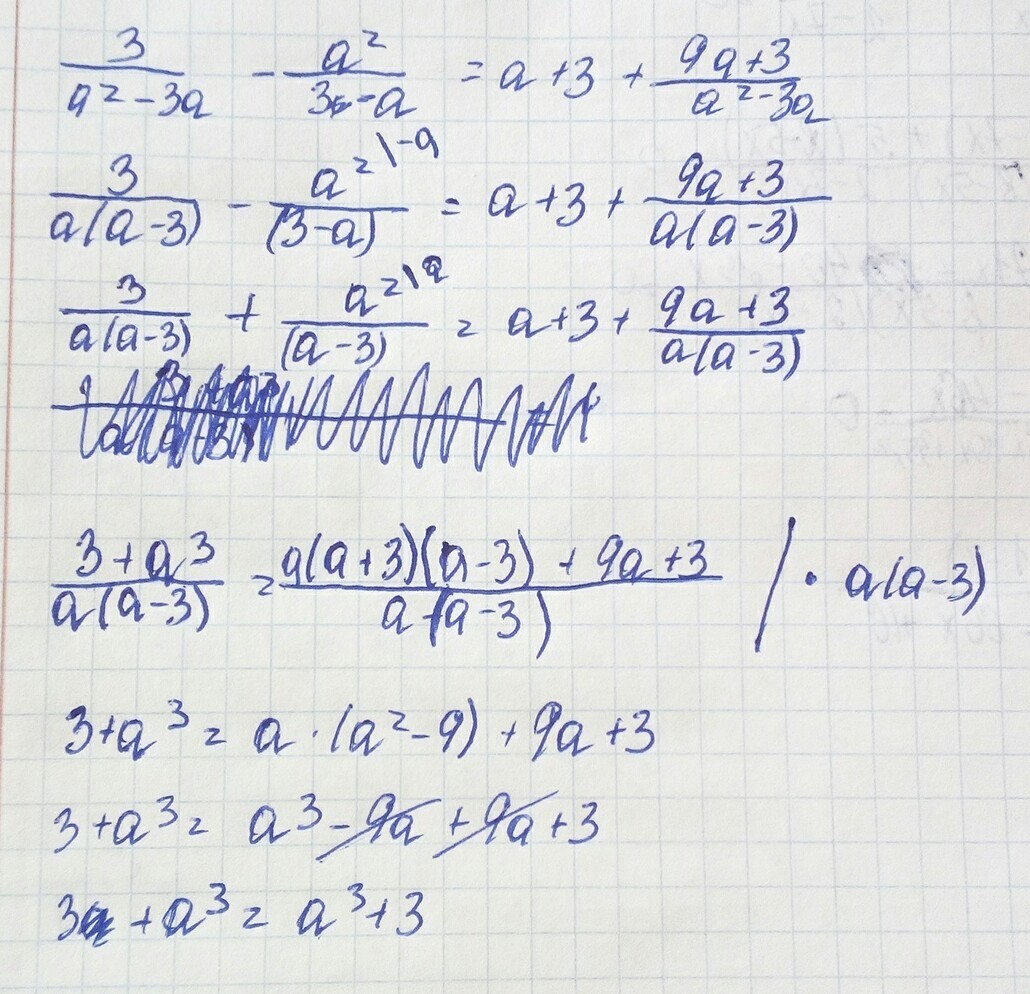 3/(a² - 3a) - a²/(3 - a) = a + 3 + (9a + 3)/(a² - 3a)
3/(a(a - 3)) - a² \-a/((3 - a)) = a + 3 + (9a + 3)/(a(a - 3))
3/(a(a - 3)) + a² \a/((a - 3)) = a + 3 + (9a + 3)/(a(a - 3))
(3 + a³)/(a(a - 3)) = (a(a + 3)(a - 3) + 9a + 3)/(a(a - 3)) / · a(a - 3)
3 + a³ = a · (a² - 9) + 9a + 3
3 + a³ = a³ - 9a + 9a + 3
3 + a³ = a³ + 3